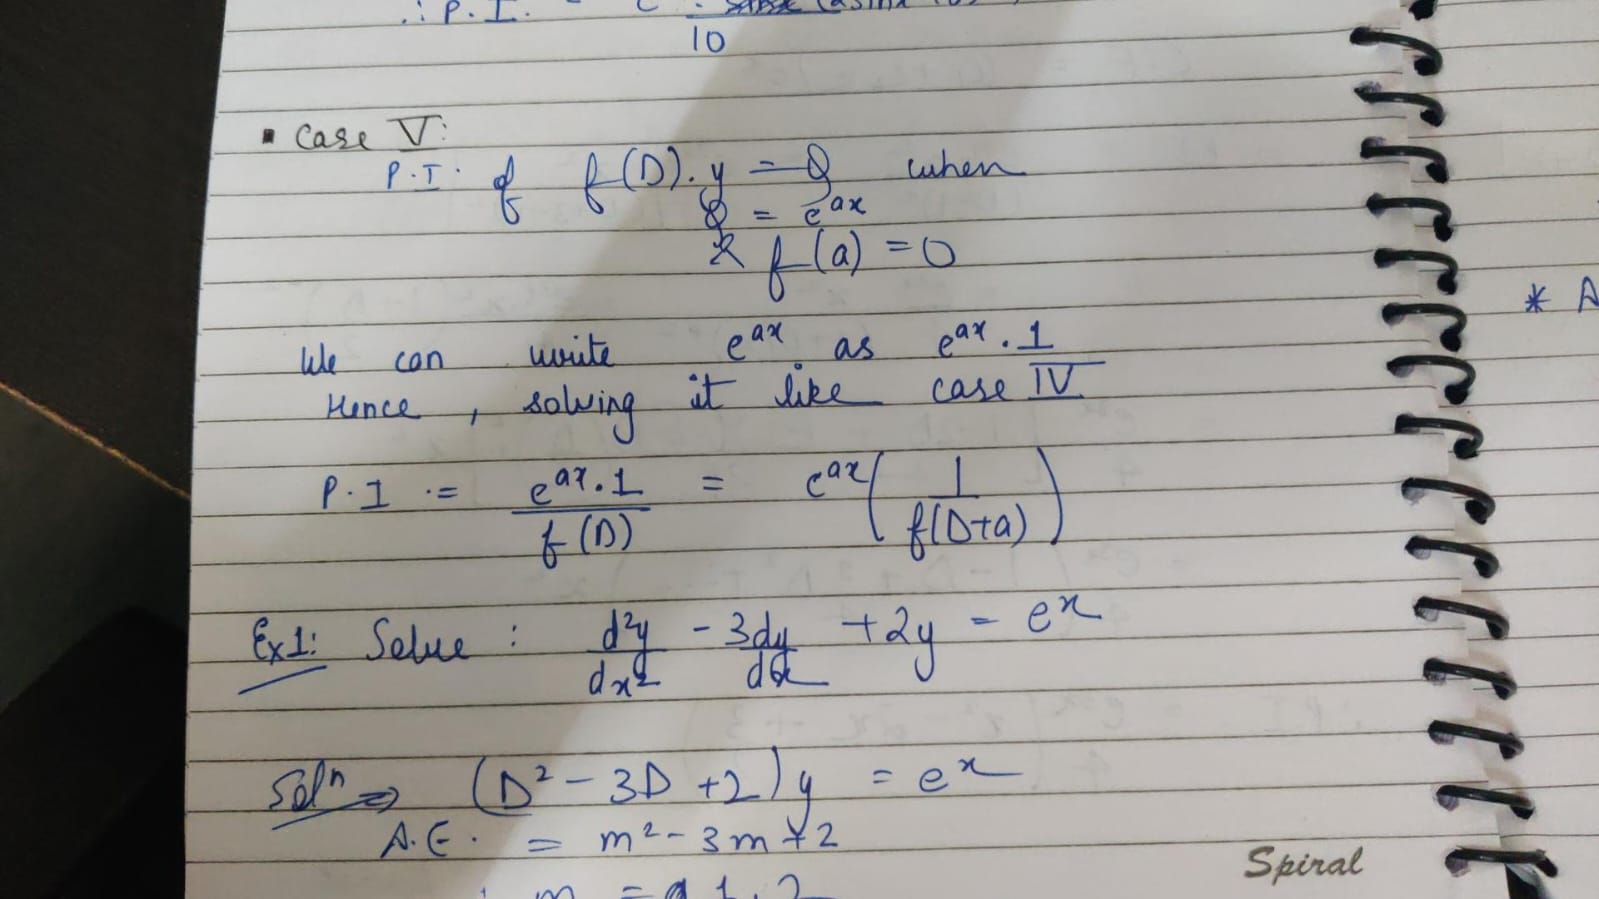 ∴ P.I. =
10
▪ Case V:
P.I. of f(D).y = Q when
Q = e^ax
& f(a) = 0
We can write e^ax as e^ax . 1
Hence, solving it like case IV
P.I. = e^ax . 1 / f(D) = e^ax ( 1 / f(D+a) )
Ex1: Solve : d²y/dx² - 3dy/dx + 2y = e^x
Solⁿ ⇒ (D² - 3D + 2) y = e^x
A.E. = m² - 3m + 2
m = 1, 2
* A
Spiral